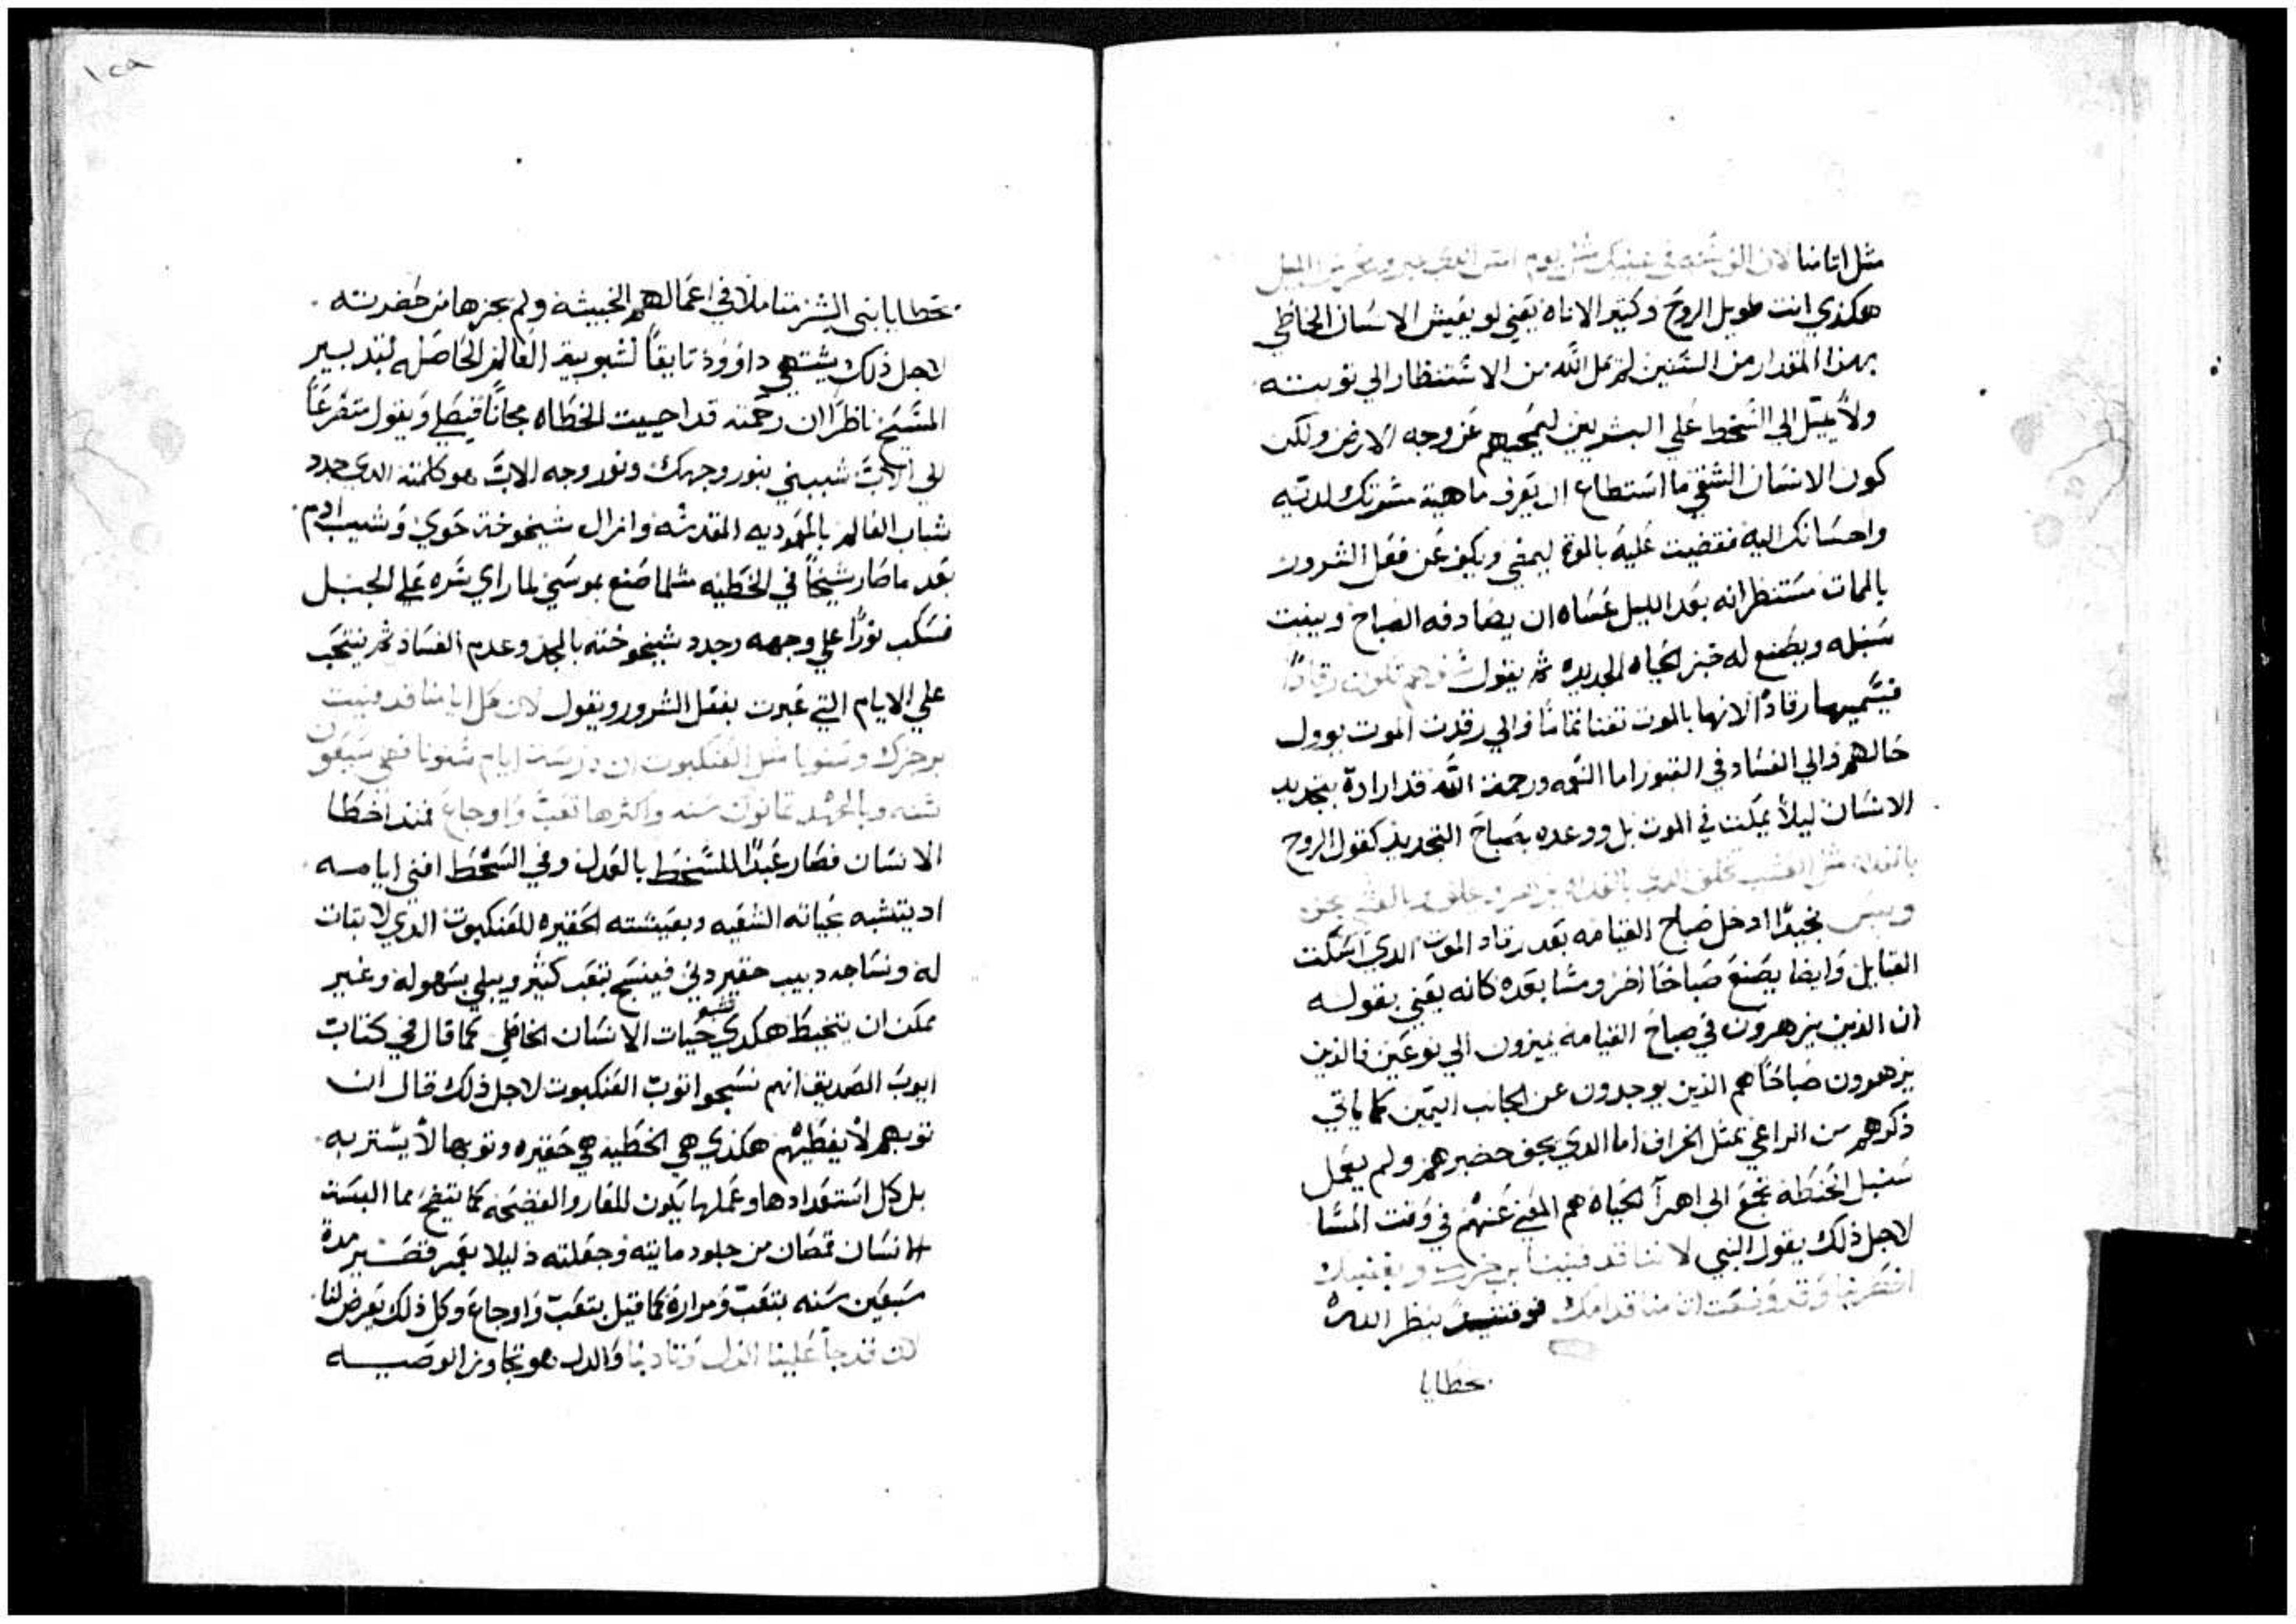 مثل اتاننا لان الف سنه في عينيك مثل يوم امس العابر
هكذي انت طويل الروح وكتير الاناه يعني لو يعيش الانسان الخاطي
بهذا المقدار من السنين لم يمل الله من الاستنظار الي توبته
ولا يميل الي السخط علي البشريين ليمحيهم عن وجه الارض ولكن
كون الانسان الشقي ما استطاع ان يعرف ماهية مشورتك لديه
واحسانك اليه فقضيت عليه بالموت ليمضي ويكف عن فعل الشرور
بالممات مستنظرا انه بعد الليل عساه ان يصادفه الصباح وينبت
سنبله ويصنع له خبز الحياه الجديده ثم يقول سنوهم تكون رقادا
فيسميها رقادا لانها بالموت تفنا تماما والي رقدت الموت يوول
حالهم والي الفساد في القبور اما النعمه ورحمة الله قد ارادة بتجديد
الانسان ليلا يمكت في الموت بل ووعده بصباح التجديد كقول الروح
بالغداه مثل العشب
وييبس نجيدا ادخل صباح القيامه بعد رقاد الموت الدي اسكنت
القبايل وايضا يصنع صباحا اخر ومشا بعده كانه يعني بقوله
ان الذين يزهرون في صباح القيامه يميزون الي نوعين فالذين
يزهرون صباحا هم الذين يوجدون عن الجانب اليمين كما ياتي
ذكرهم من الراعي بمثل الخراف اما الدي يجف خضيرهم ولم يعمل
سنبل الحنطه تجمع الي اهرآ الحياة هم المعني عنهم في وقت المسا
لاجل ذلك يقول النبي لاننا قد فنينا برجزك وبغضبك
اضطربنا وقد وضعت اتامنا قدامك بنظر الله
بخطايا
١٢٩
بخطايا بني البشر متاملا في اعمالهم الخبيثه ولم يحزها من حضرته
لاجل ذلك يشتهي داوود تايقا لشبوبية العالم الحاصله بتدبير
المسيح ناظرا ان رحمته قد احييت الخطاه مجانا فيصلي ويقول متضرعا
الي الاب شببني بنور وجهك ونور وجه الاب هو كلمته الدي جدد
شباب العالم بالمعموديه المقدسه وازال شيخوخة حوي وشيب ادم
بعد ما صار شيخا في الخطيه مثلما صنع بموسي لما راي سره علي الجبل
فسكب نورا علي وجهه وجدد شيخوخته بالمجد وعدم الفساد ثم ينتحب
علي الايام التي عبرت بفعل الشرور ويقول لان كل ايامنا قد فنيت
برجزك وسنونا مثل العنكبوت ان درست ايام سنونا فهي سبعون
سنه وبالجهد تمانون سنه واكثرها تعب واوجاع فمند اخطا
الانسان فصار عبدا للسخط بالعدل وفي السخط افني ايامه
اد يتشبه بحياته الشقيه وبعيشته الحقيره للعنكبوت الدي لا تبات
له ونساجه دبيب حقير دني فينسج بتعب كثير ويبلي بسهوله وغير
ممكن ان يتخيط هكدي هي حيات الانسان الخاطي كما قال في كتاب
ايوب الصديق انهم نسجوا توب العنكبوت لاجل ذلك قال ان
توبهم لا يغطيهم هكذي هي الخطيه هي حقيره وتوبها لا يستر به
بل كل استعدادها وعملها يكون للعار والفضيحه كما يتضح مما البست
الانسان قمصان من جلود مايته وجعلته ذليلا بعمر قصير مدة
سبعين سنه بتعب ومرارة كما قيل بتعب واوجاع وكل ذلك يعرض لنا
لان قد جا علينا الدل وتادبنا والدل هو تجاوز الوصيه